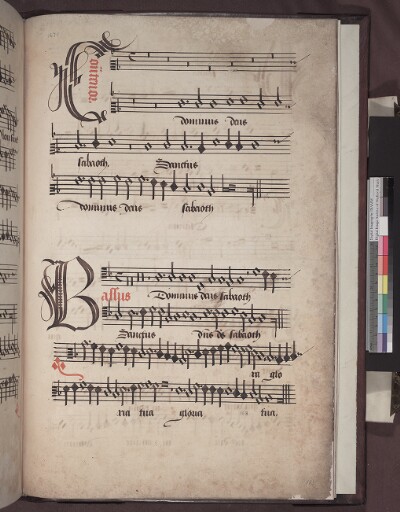 Contratenor
dominus deus
sabaoth. Sanctus
dominus deus sabaoth
Bassus Dominus deus sabaoth
Sanctus dns de sabaoth
in glo
ria tua gloria tua.